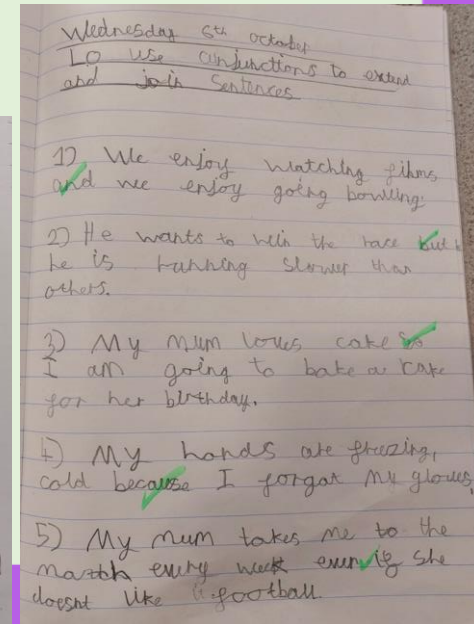 Wednesday 6th october
LO use conjunctions to extend
and join sentences
1) We enjoy watching films
and we enjoy going bowling.
2) He wants to win the race but
he is running slower than
others.
3) My mum loves cake so
I am going to bake a cake
for her birthday.
4) My hands are freezing,
cold because I forgot my gloves,
5) My mum takes me to the
match every week even if she
doesnt like football.